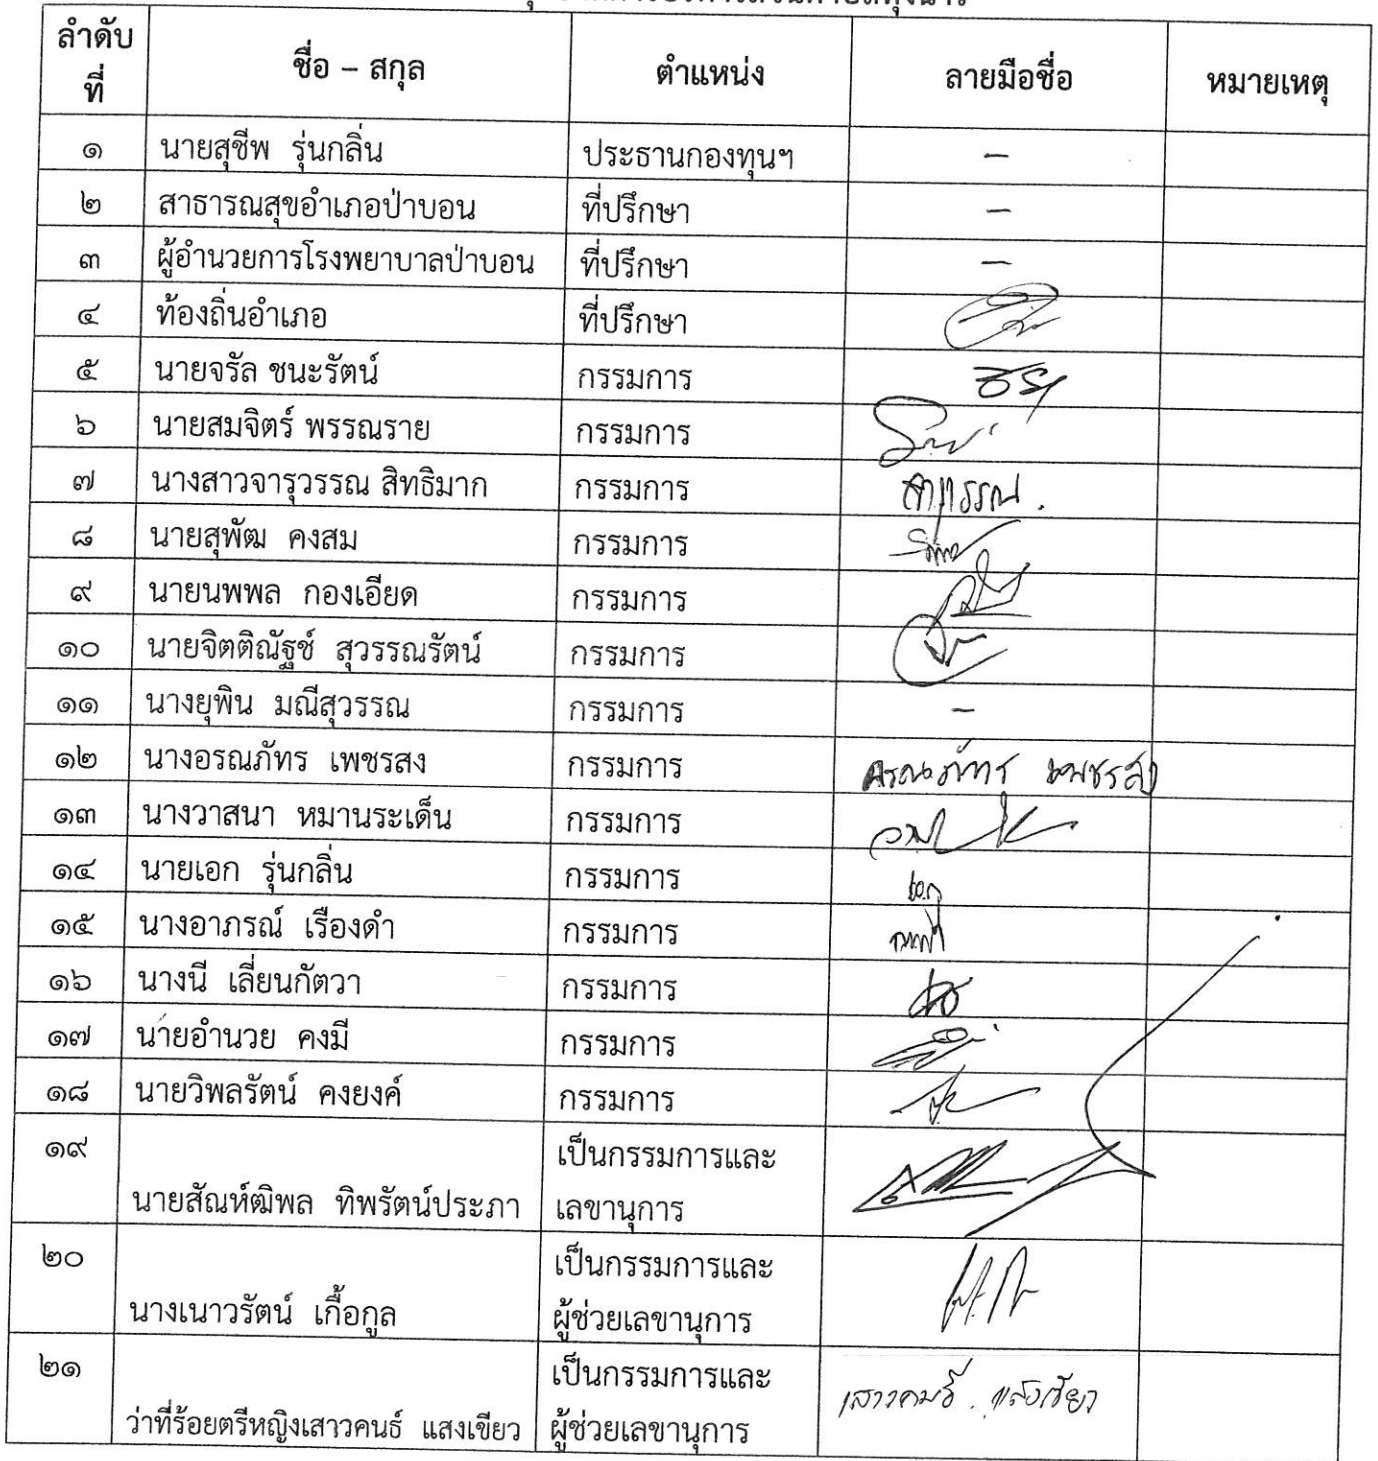 ลำดับ ชื่อ – สกุล ตำแหน่ง ลายมือชื่อ หมายเหตุ
ที่
๑ นายสุชีพ รุ่นกลิ่น ประธานกองทุนฯ –
๒ สาธารณสุขอำเภอป่าบอน ที่ปรึกษา –
๓ ผู้อำนวยการโรงพยาบาลป่าบอน ที่ปรึกษา –
๔ ท้องถิ่นอำเภอ ที่ปรึกษา
๕ นายจรัล ชนะรัตน์ กรรมการ
๖ นายสมจิตร์ พรรณราย กรรมการ
๗ นางสาวจารุวรรณ สิทธิมาก กรรมการ จารุวรรณ.
๘ นายสุพัฒ คงสม กรรมการ
๙ นายนพพล กองเอียด กรรมการ
๑๐ นายจิตติณัฐช์ สุวรรณรัตน์ กรรมการ
๑๑ นางยุพิน มณีสุวรรณ กรรมการ –
๑๒ นางอรณภัทร เพชรสง กรรมการ อรณภัทร เพชรสง
๑๓ นางวาสนา หมานระเด็น กรรมการ
๑๔ นายเอก รุ่นกลิ่น กรรมการ เอก
๑๕ นางอาภรณ์ เรืองดำ กรรมการ
๑๖ นางนี เลี่ยนกัตวา กรรมการ
๑๗ นายอำนวย คงมี กรรมการ
๑๘ นายวิพลรัตน์ คงยงค์ กรรมการ
๑๙ เป็นกรรมการและ
นายสัณห์ฒิพล ทิพรัตน์ประภา เลขานุการ
๒๐ เป็นกรรมการและ
นางเนาวรัตน์ เกื้อกูล ผู้ช่วยเลขานุการ
๒๑ เป็นกรรมการและ
ว่าที่ร้อยตรีหญิงเสาวคนธ์ แสงเขียว ผู้ช่วยเลขานุการ